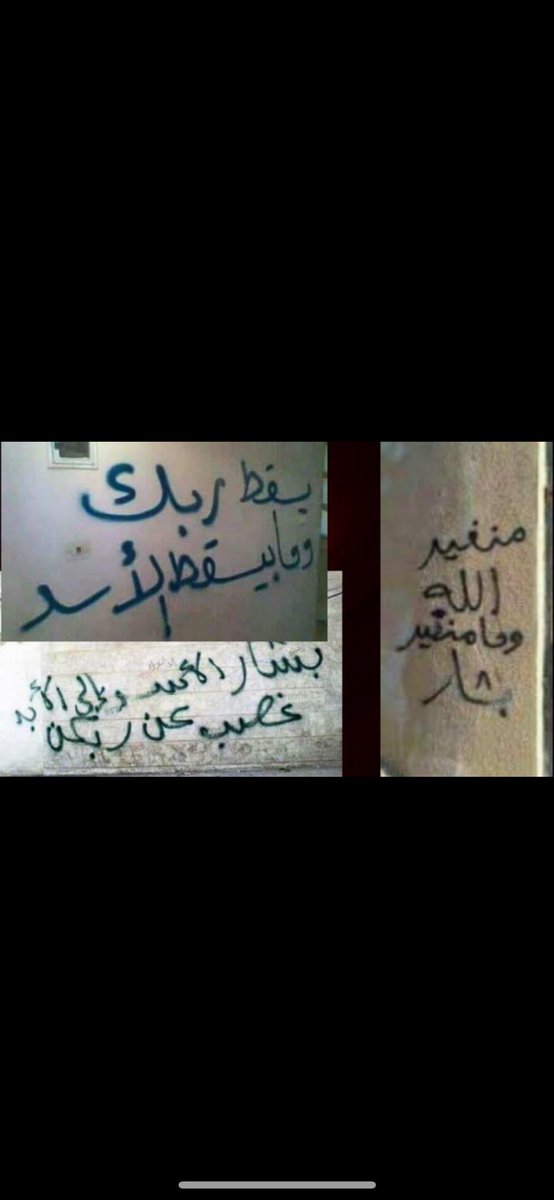 يسقط ربك
ومابيسقط الأسد
بشار الأسد وإلى الأبد
غصب عن ربكن
منغير
الله
ومامنغير
بشار